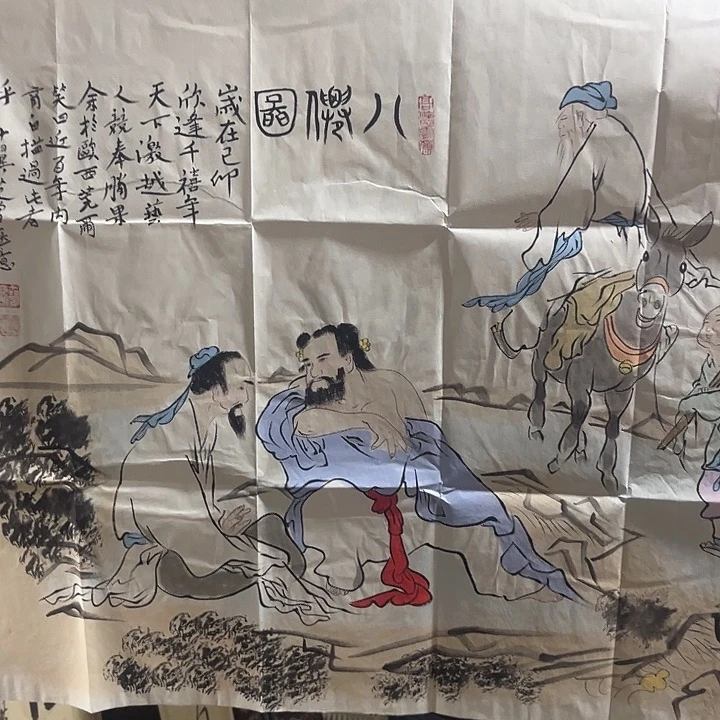 八僊圖
歲在己卯
欣逢千禧年
天下激越藝
人競奉果
余於歐西莞爾
笑曰近百年內
有白描過此者
乎